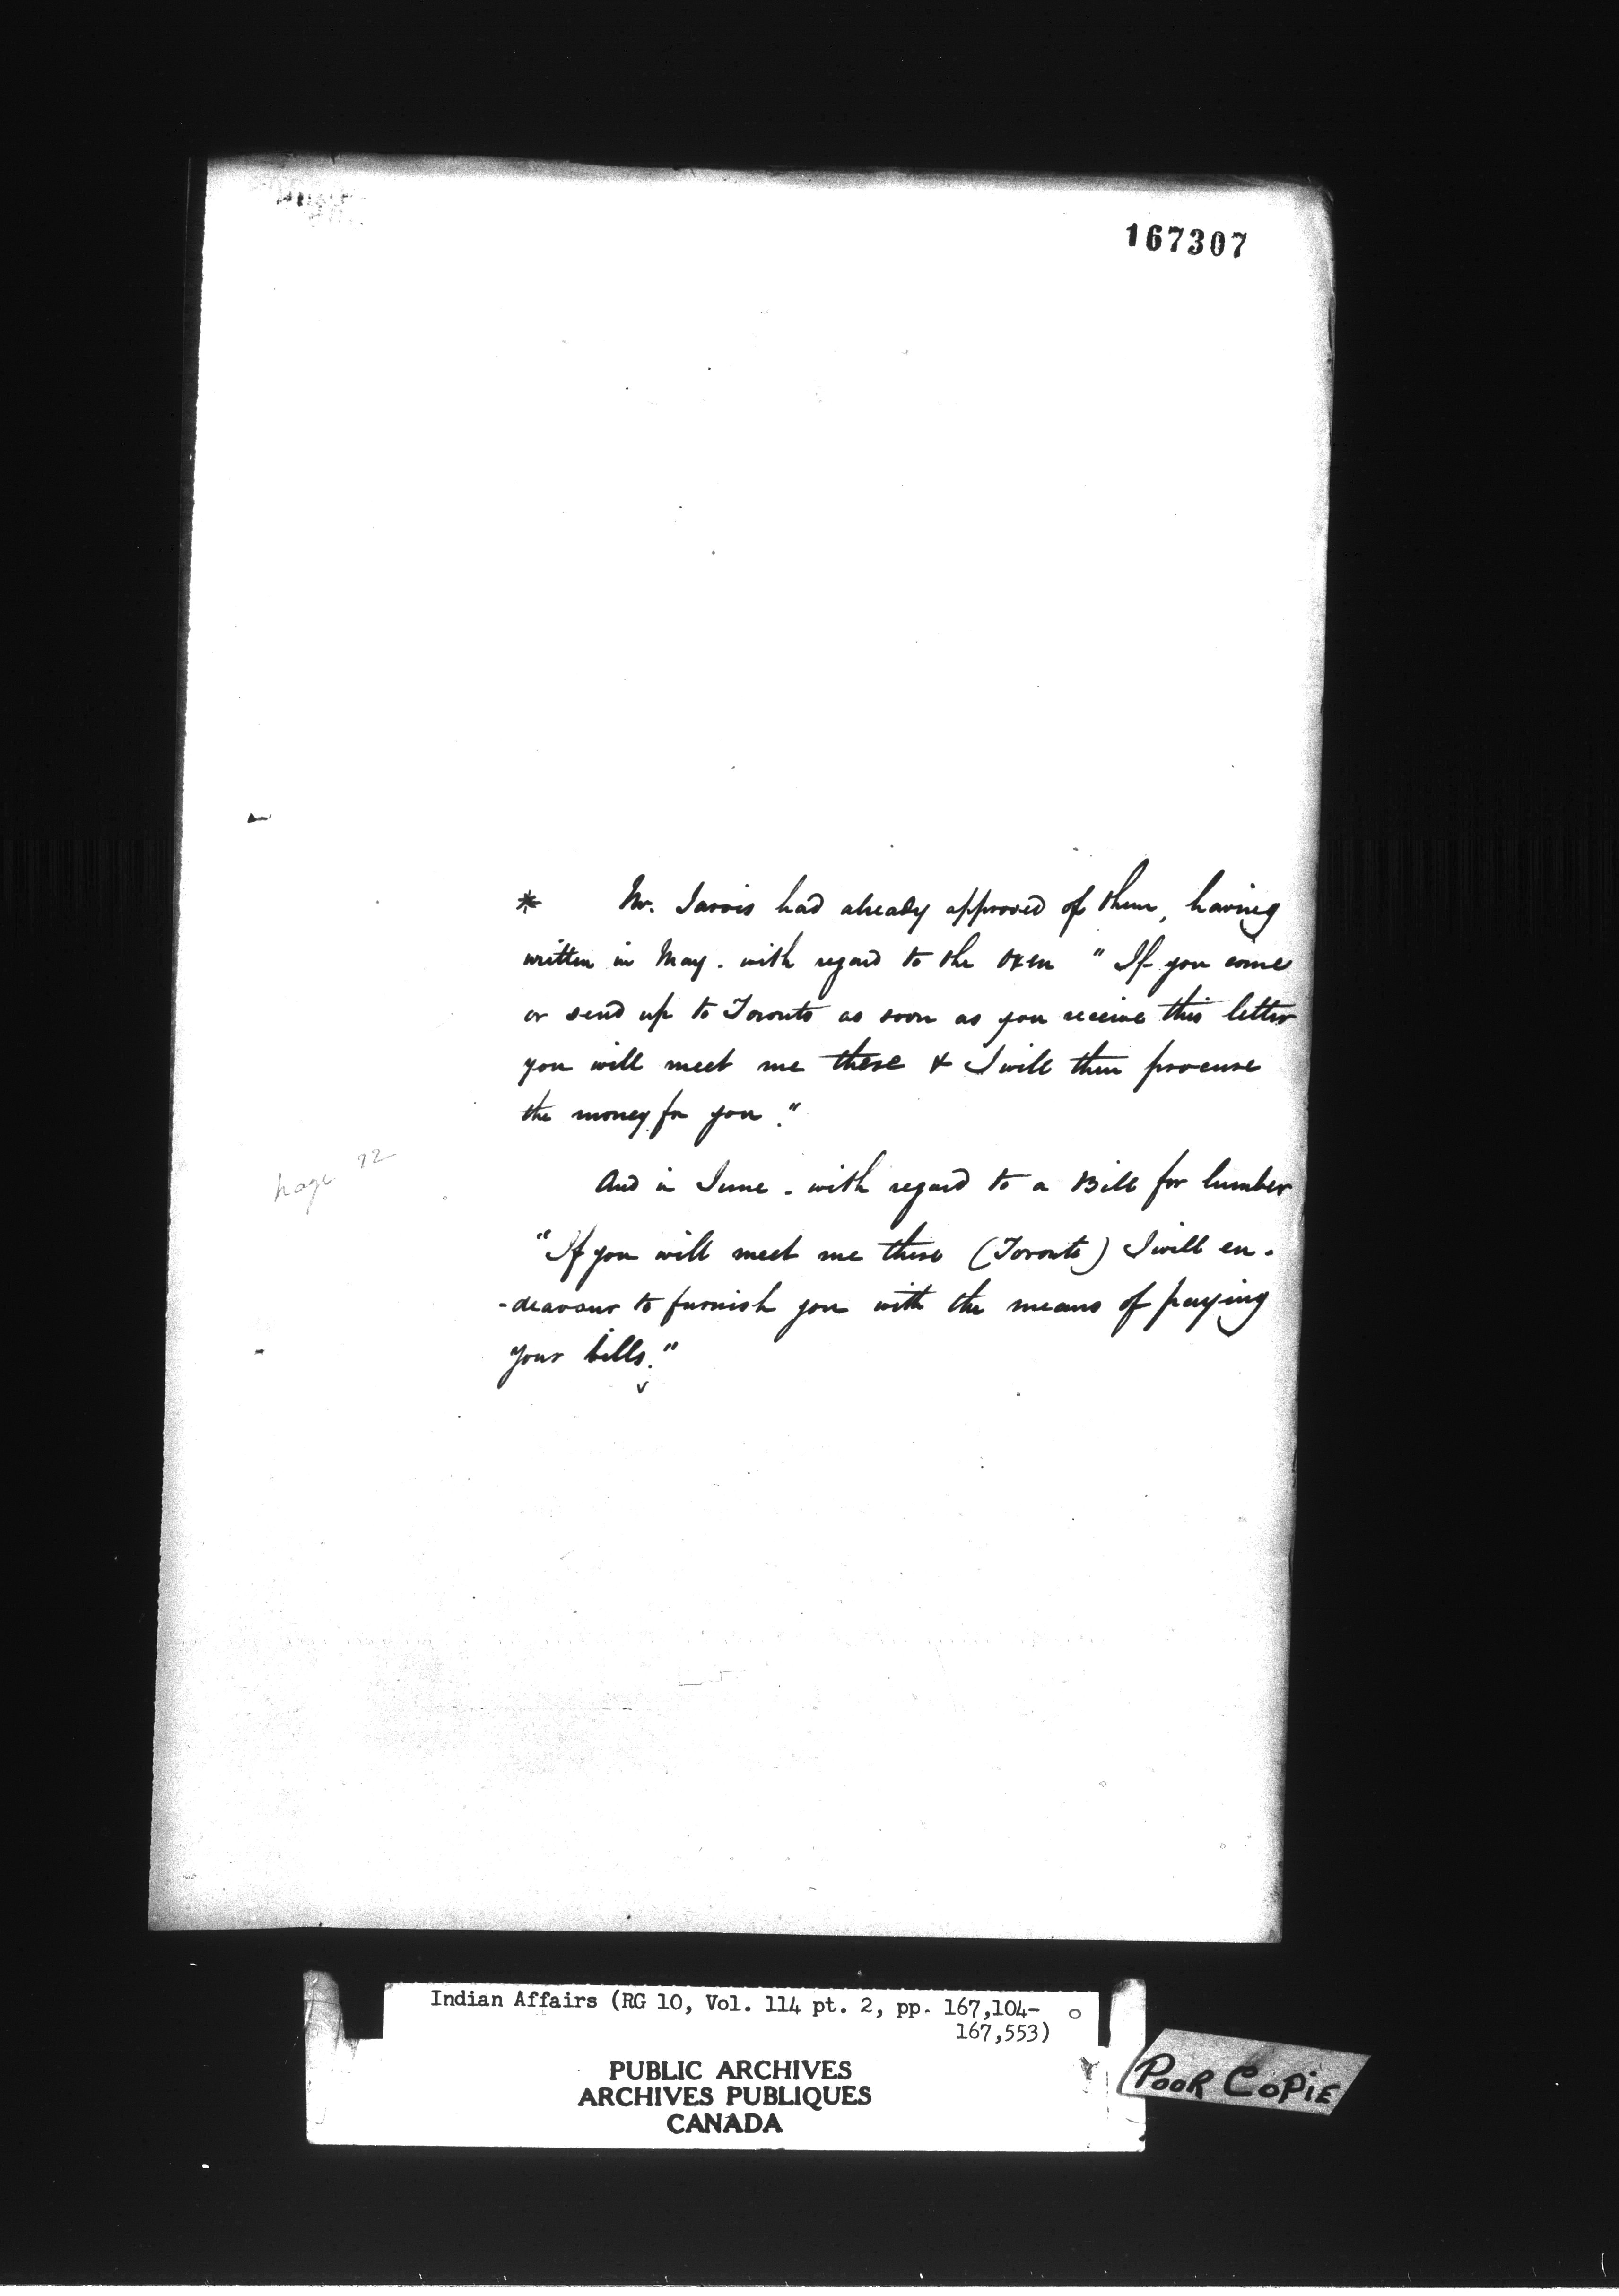 167307
* Mr. Jarvis had already approved of them, having
written in May. with regard to the oxen "If you come
or send up to Toronto as soon as you receive this letter
you will meet me there & I will then procure
the money for you."
page 72
And in June - with regard to a Bill for lumber
"If you will meet me there (Toronto) I will en-
-deavour to furnish you with the means of paying
your bills."
Indian Affairs (RG 10, Vol. 114 pt. 2, pp. 167,104-
167,553)
PUBLIC ARCHIVES
ARCHIVES PUBLIQUES
CANADA
POOR COPIE